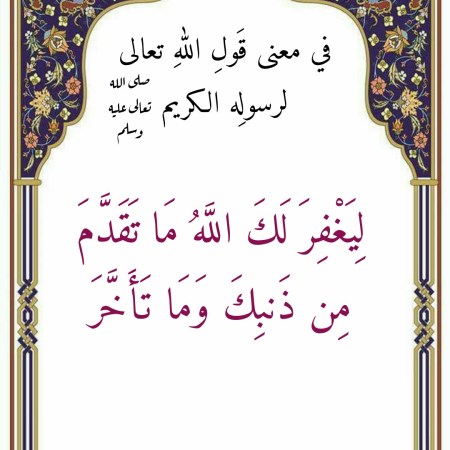 في معنى قَولِ اللهِ تعالى
لرسولِه الكريم صلى الله تعالى عليه وسلم
لِيَغْفِرَ لَكَ اللَّهُ مَا تَقَدَّمَ
مِن ذَنبِكَ وَمَا تَأَخَّرَ